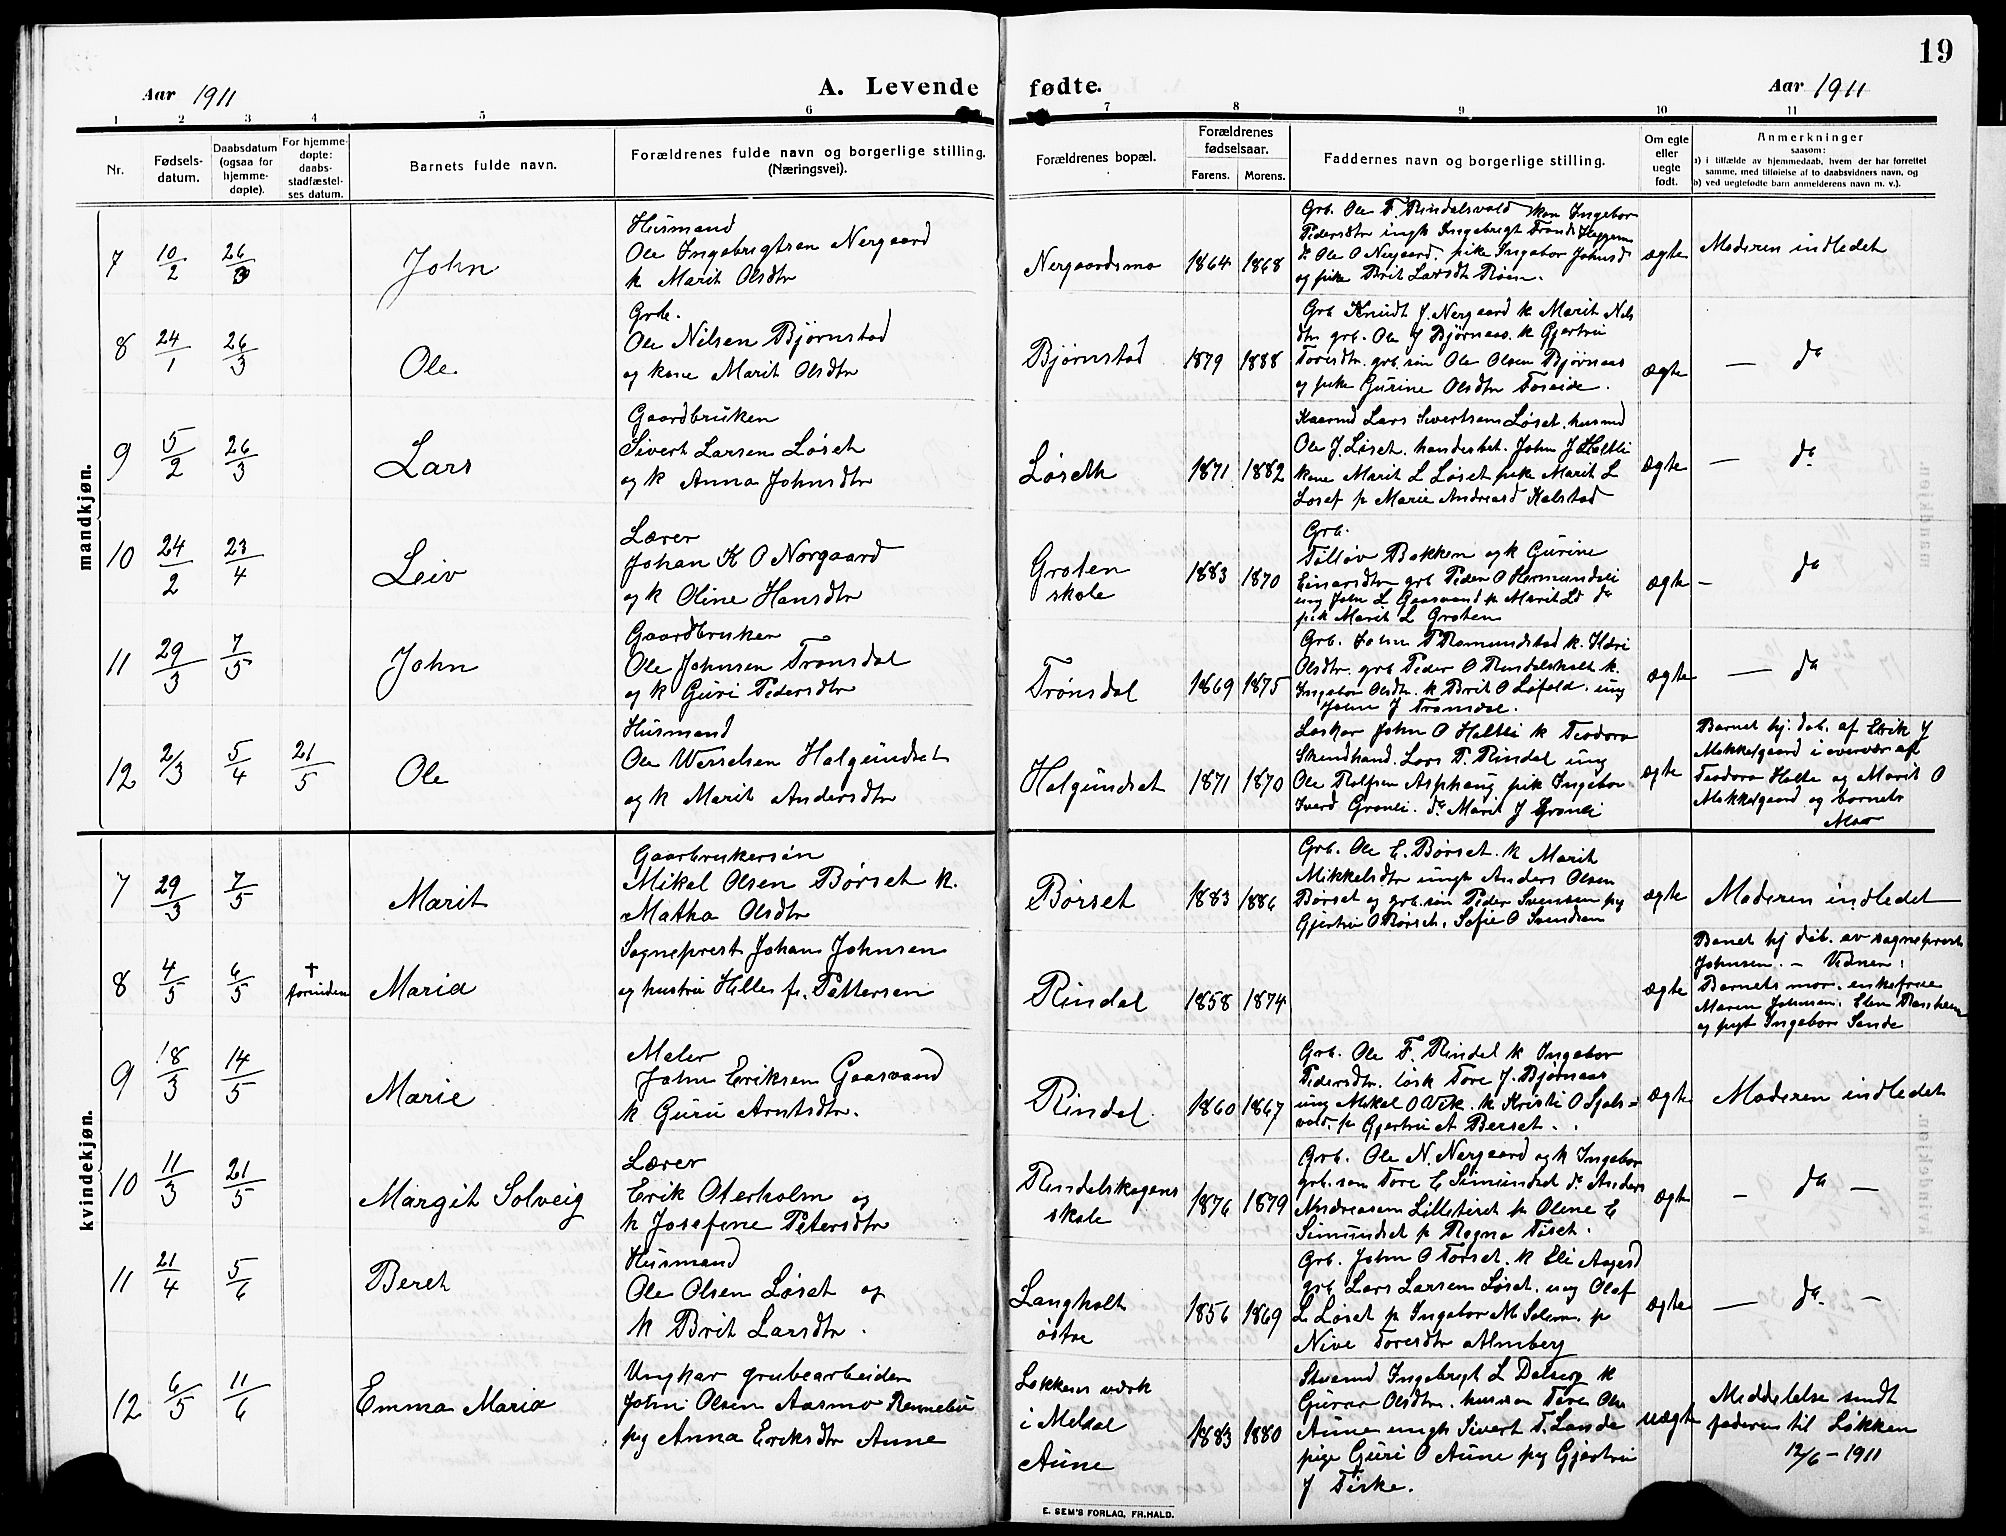 19
Aar 1911
A. Levende fødte.
Aar 1911
1 2 3 4 5 6 7 8 9 10 11
Nr.
Fødsels-
datum.
Daabsdatum
(ogsaa for
hjemme-
døpte).
For hjemme-
døpte:
daabs-
stadfæstel-
ses datum.
Barnets fulde navn.
Forældrenes fulde navn og borgerlige stilling.
(Næringsvei).
Forældrenes bopæl.
Forældrenes
fødselsaar.
Farens. Morens.
Faddernes navn og borgerlige stilling.
Om egte
eller
uegte
født.
Anmerkninger
saasom:
a) i tilfælde av hjemmedaab, hvem der har forrettet
samme, med tilføielse af to daabsvidners navn, og
b) ved uegtefødte barn anmelderens navn m. v.).
mandkjøn.
7 10/2 26/3 John
Husmand
Ole Ingebrigtsen Nergaard
k Marit Olsdtr
Nergaardsmo 1864 1868
Grb. Ole F. Rindalsvold kon Ingebor
Pedersdtr ungk Ingebrigt Trond
do Ole O Nergaard. pike Ingebor Johnsd
og pike Brit Larsdt Røen.
ægte
Moderen indledet
8 24/1 26/3 Ole
Grb.
Ole Nilsen Bjørnstad
og kone Marit Olsdtr
Bjørnstad 1879 1888
Grb Knudt J. Nergaard k Marit Nils
dtr grb. Ole J Bjørnaas. k Gjertrui
Toresdtr. grb. søn Ole Olsen Bjørnaas
og pike Gurine Olsdtr Toseide.
ægte
— do
9 5/2 26/3 Lars
Gaardbruken
Sivert Larsen Løset
og k Anna Johnsdtr
Løseth 1871 1882
Kaarmd Lars Sivertsens Løset. husmd
Ole J. Løset. handesbet. John J Holtli
kone Marit L Løset pik Marit L
Løset p Marie Andreasd Kalstad
ægte
— do
10 24/2 23/4 Leiv
Lærer
Johan K O Norgaard
og k Oline Hansdtr
Groten
skole
1883 1870
Grb.
Tølløv Bakken og k Gurine
Einarsdtr grb Peder O Hermundsli
ung John L Gaasvand p Marit Ld do
pik Marit L Groten
ægte
— do
11 29/3 7/5 John
Gaardbruker
Ole Johnsen Tronsdal
og k Guri Pedersdtr
Trønsdal 1869 1875
Grb. John P Romundstad k. Kari
Olsdtr. grb Peder O Rindalsholt k.
Ingebor Olsdtr. k Brit O Løfald. ung
John J Tronsdal.
ægte
— do
12 2/3 5/4 21/5 Ole
Husmand
Ole Wesselsen Halgundset
og k Marit Andersdtr
Halgundset 1871 1870
Loskar John O Holtli k Teodora
Skendhand. Lars T. Rindal ung
Ole Rolfsen Asphaug pik Ingebor
Iverd Gronli. do Marit J Gronli
ægte
Barnet hj. døb. af Erik J
Mokkelgaard i overvær af
Teodora Holte og Marit O
Mokkelgaard og barnets
Mor
kvindekjøn.
7 29/3 7/5 Marit
Gaarbrukersøn
Mikal Olsen Børset k.
Matha Olsdtr
Børset 1883 1886
Grb. Ole E. Børset. k Marit
Mikkelsdtr ungk Anders Olsen
Børset og grb. søn Peder Svensen pg
Gjertrui O Børset. Sofie O Svendsen
ægte
Moderen indledet
8 4/5 6/5 † forinden Maria
Sogneprest Johan Johnsen
og hustru Helles f. Pettersen
Rindal 1858 1874
ægte
Banet hj døb. av sogneprest
Johnsen. — Vidner:
Barnets mor. enkefrue
Maren Johnsen. Elen
og pyt Ingebor Sande
9 18/3 14/5 Marie
Maler
John Eriksen Gaasvand
k Guru Arntsdtr.
Rindal 1860 1867
Grb. Ole F. Rindal k Ingebor
Pedersdtr. løsk Tore J. Bjørnaas
ung Mikal O Vik. k Kristi O Sjøls=
vold. p Gjertrui A Berset.
ægte
Moderen indledet
10 11/3 21/5 Margit Solveig
Lærer
Erik Oterholm og
k Josefine Petersdtr
Rindalskogens
skole
1876 1879
Grb. Ole N. Nergaard og k Ingebor
grb. søn Tore E Simundset do Anders
Andreasen Lilletiset p Olene E
Simundset p Ragna Tiset.
ægte
— do —
11 21/4 5/6 Beret
Husmand
Ole Olsen Løset og
k Brit Larsdtr.
Langholt
østre
1856 1869
Grb. John O Torset. k Eli Aagesd
grb Lars Larsen Løset. ung Olaf
L Løset p Ingebor M Solem. p
Nive Toresdtr Almberg
ægte
— do —
12 6/5 11/6 Emma Maria
Ungkar grubearbeider
John Olsen Aasmo Rennebu
pg Anna Eriksdtr Aune
Løkken værk
i Meldal
Aune
1883 1880
Ingebrigt L Dalseg k
Gurao Olsdtr. husmn Tore Ols
Aune ungk Sivert T. Lande
pige Guri O Aune pg Gjertrui
J Tiske.
uægte
Meddelelse sendt
faderen til Løkken
12/6 – 1911
E. SEM'S FORLAG, FR.HALD.